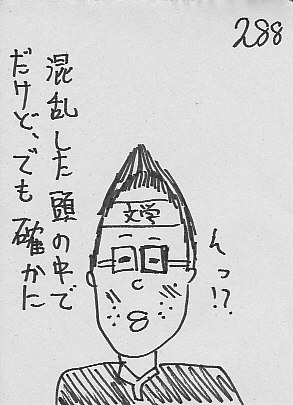 288
混乱した頭の中で
だけど、でも確かに
文学
んっ!?